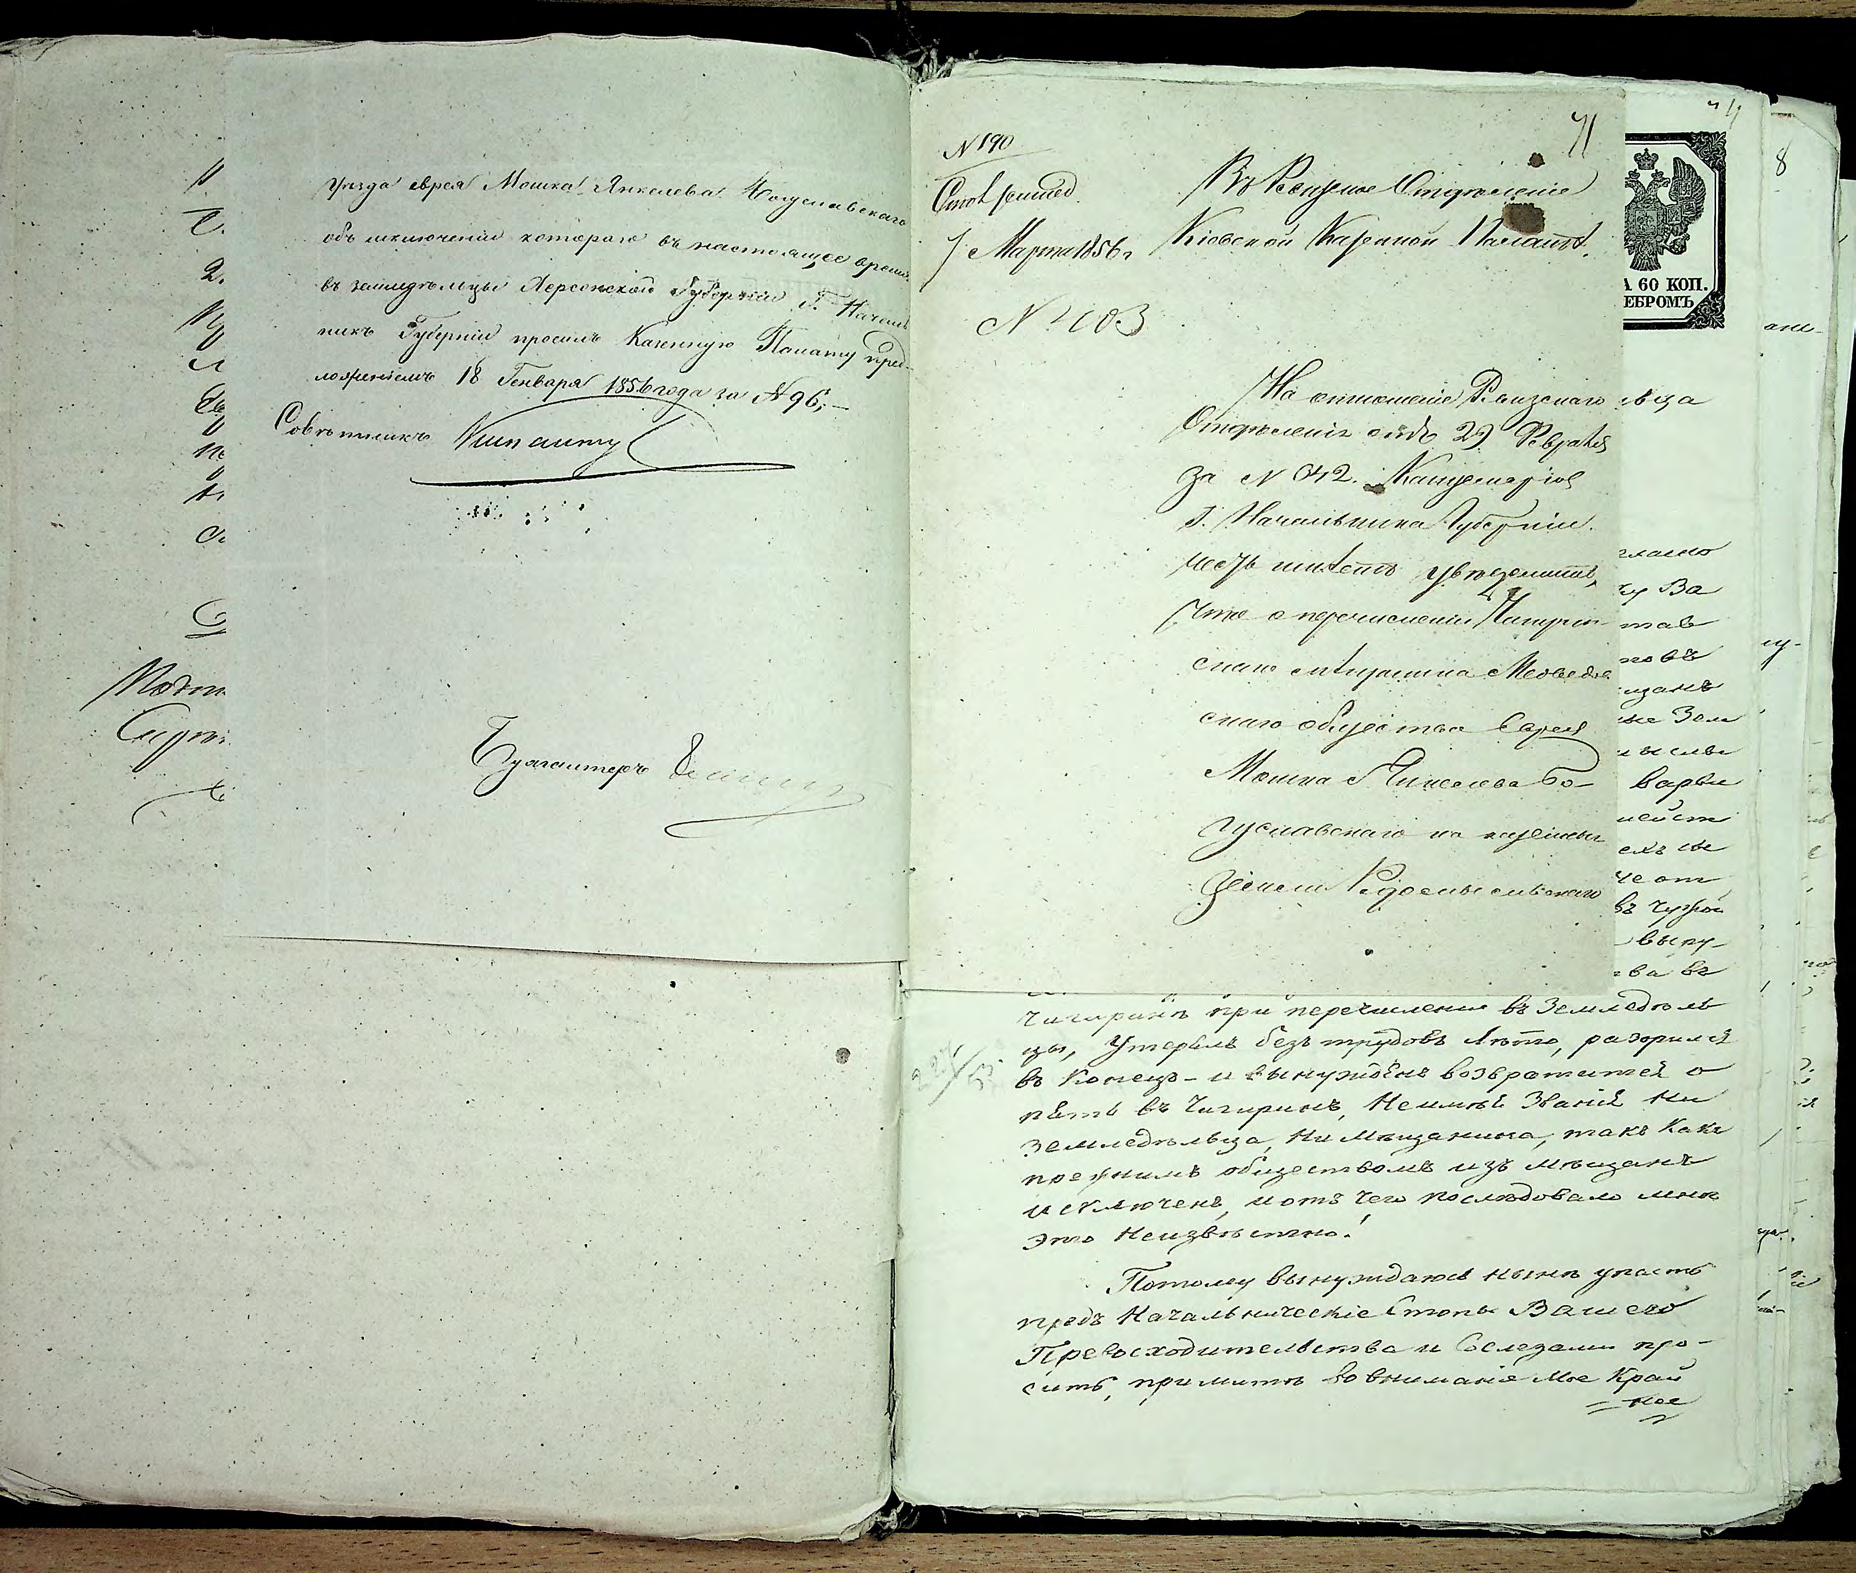 уѣзда еврея Мошка Янкелева Богуславскаго
объ исключеніи котораго въ настоящее время
въ земледѣльцы Херсонской Губерніи Г. Началь
никъ Губерніи просилъ Казенную Палату пред-
ложеніемъ 18 Генваря 1856 года за № 96;—
Совѣтникъ
Бухгалтеръ
№ 190
71
Въ Ревизское Отдѣленіе
7 Марта 1856 г.
Кіевской Казенной Палаты.
№ 1403
На отношеніе Ревизскаго
Отдѣленія отъ 29 Февраля
за № 642. Канцелярія
Г. Начальника Губерніи
честь имѣетъ увѣдомить,
что о перечисленіи Чигирин
скаго мѣщанина Медведов
скаго общества Еврея
Мошка Янкелева Бо-
гуславскаго на казенныя
земли Радомысльскаго
А 60 КОП.
ЕБРОМЪ
8
ьца
гласно
Ва
тав
новъ
щанъ
Зем
мысль
варви
нейст
ехъ не
че от
въ чужой
выпу-
ва въ
Чигиринѣ при перечисленіи въ Земледѣль
цы, Утерялъ безъ трудовъ Лѣто, разорился
въ Конецъ - и вынужденъ возвратится о
пять въ Чигиринъ, Неимѣя Званія Ни
Земледѣльца, Ни Мѣщанина, такъ Какъ
прежнимъ обществомъ изъ мѣщанъ
исключенъ, и отъ чего послѣдовало мнѣ
это Неизвѣстно!
Потому вынуждаюсь нынѣ упасть
предъ Начальническіе Стопы Вашего
Превосходительства и Слезами про-
сить, принять во вниманія Мое Край
=нее